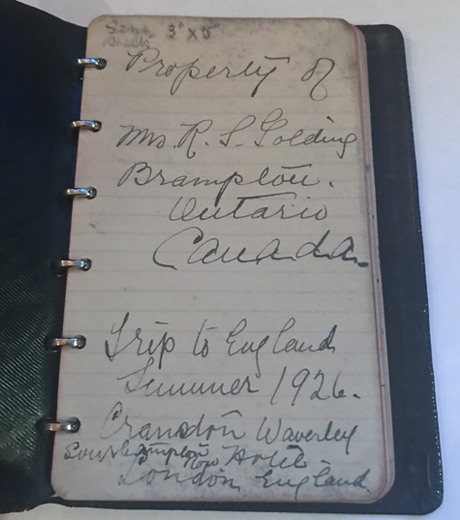 Size 3" x 5"
Sheets
Property of
Mrs. R. S. Golding
Brampton.
Ontario
Canada.
Trip to England
Summer 1926.
Crandon Waverley
Southampton Row Hotel
London England